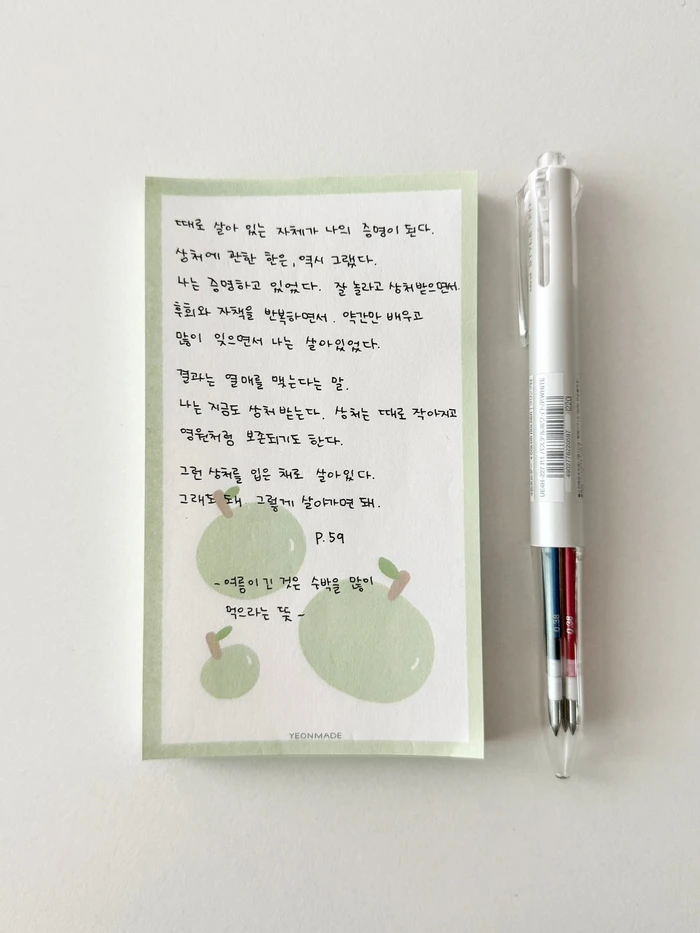 때로 살아 있는 자체가 나의 증명이 된다.
상처에 관한 한은, 역시 그랬다.
나는 증명하고 있었다. 잘 놀라고 상처받으면서.
후회와 자책을 반복하면서. 약간만 배우고
많이 잊으면서 나는 살아있었다.
결과는 열매를 맺는다는 말.
나는 지금도 상처 받는다. 상처는 때로 작아지고
영원처럼 보존되기도 한다.
그런 상처를 입은 채로 살아있다.
그래도 돼. 그렇게 살아가면 돼.
P.59
-여름이 긴 것은 수박을 많이
먹으라는 뜻-
YEONMADE